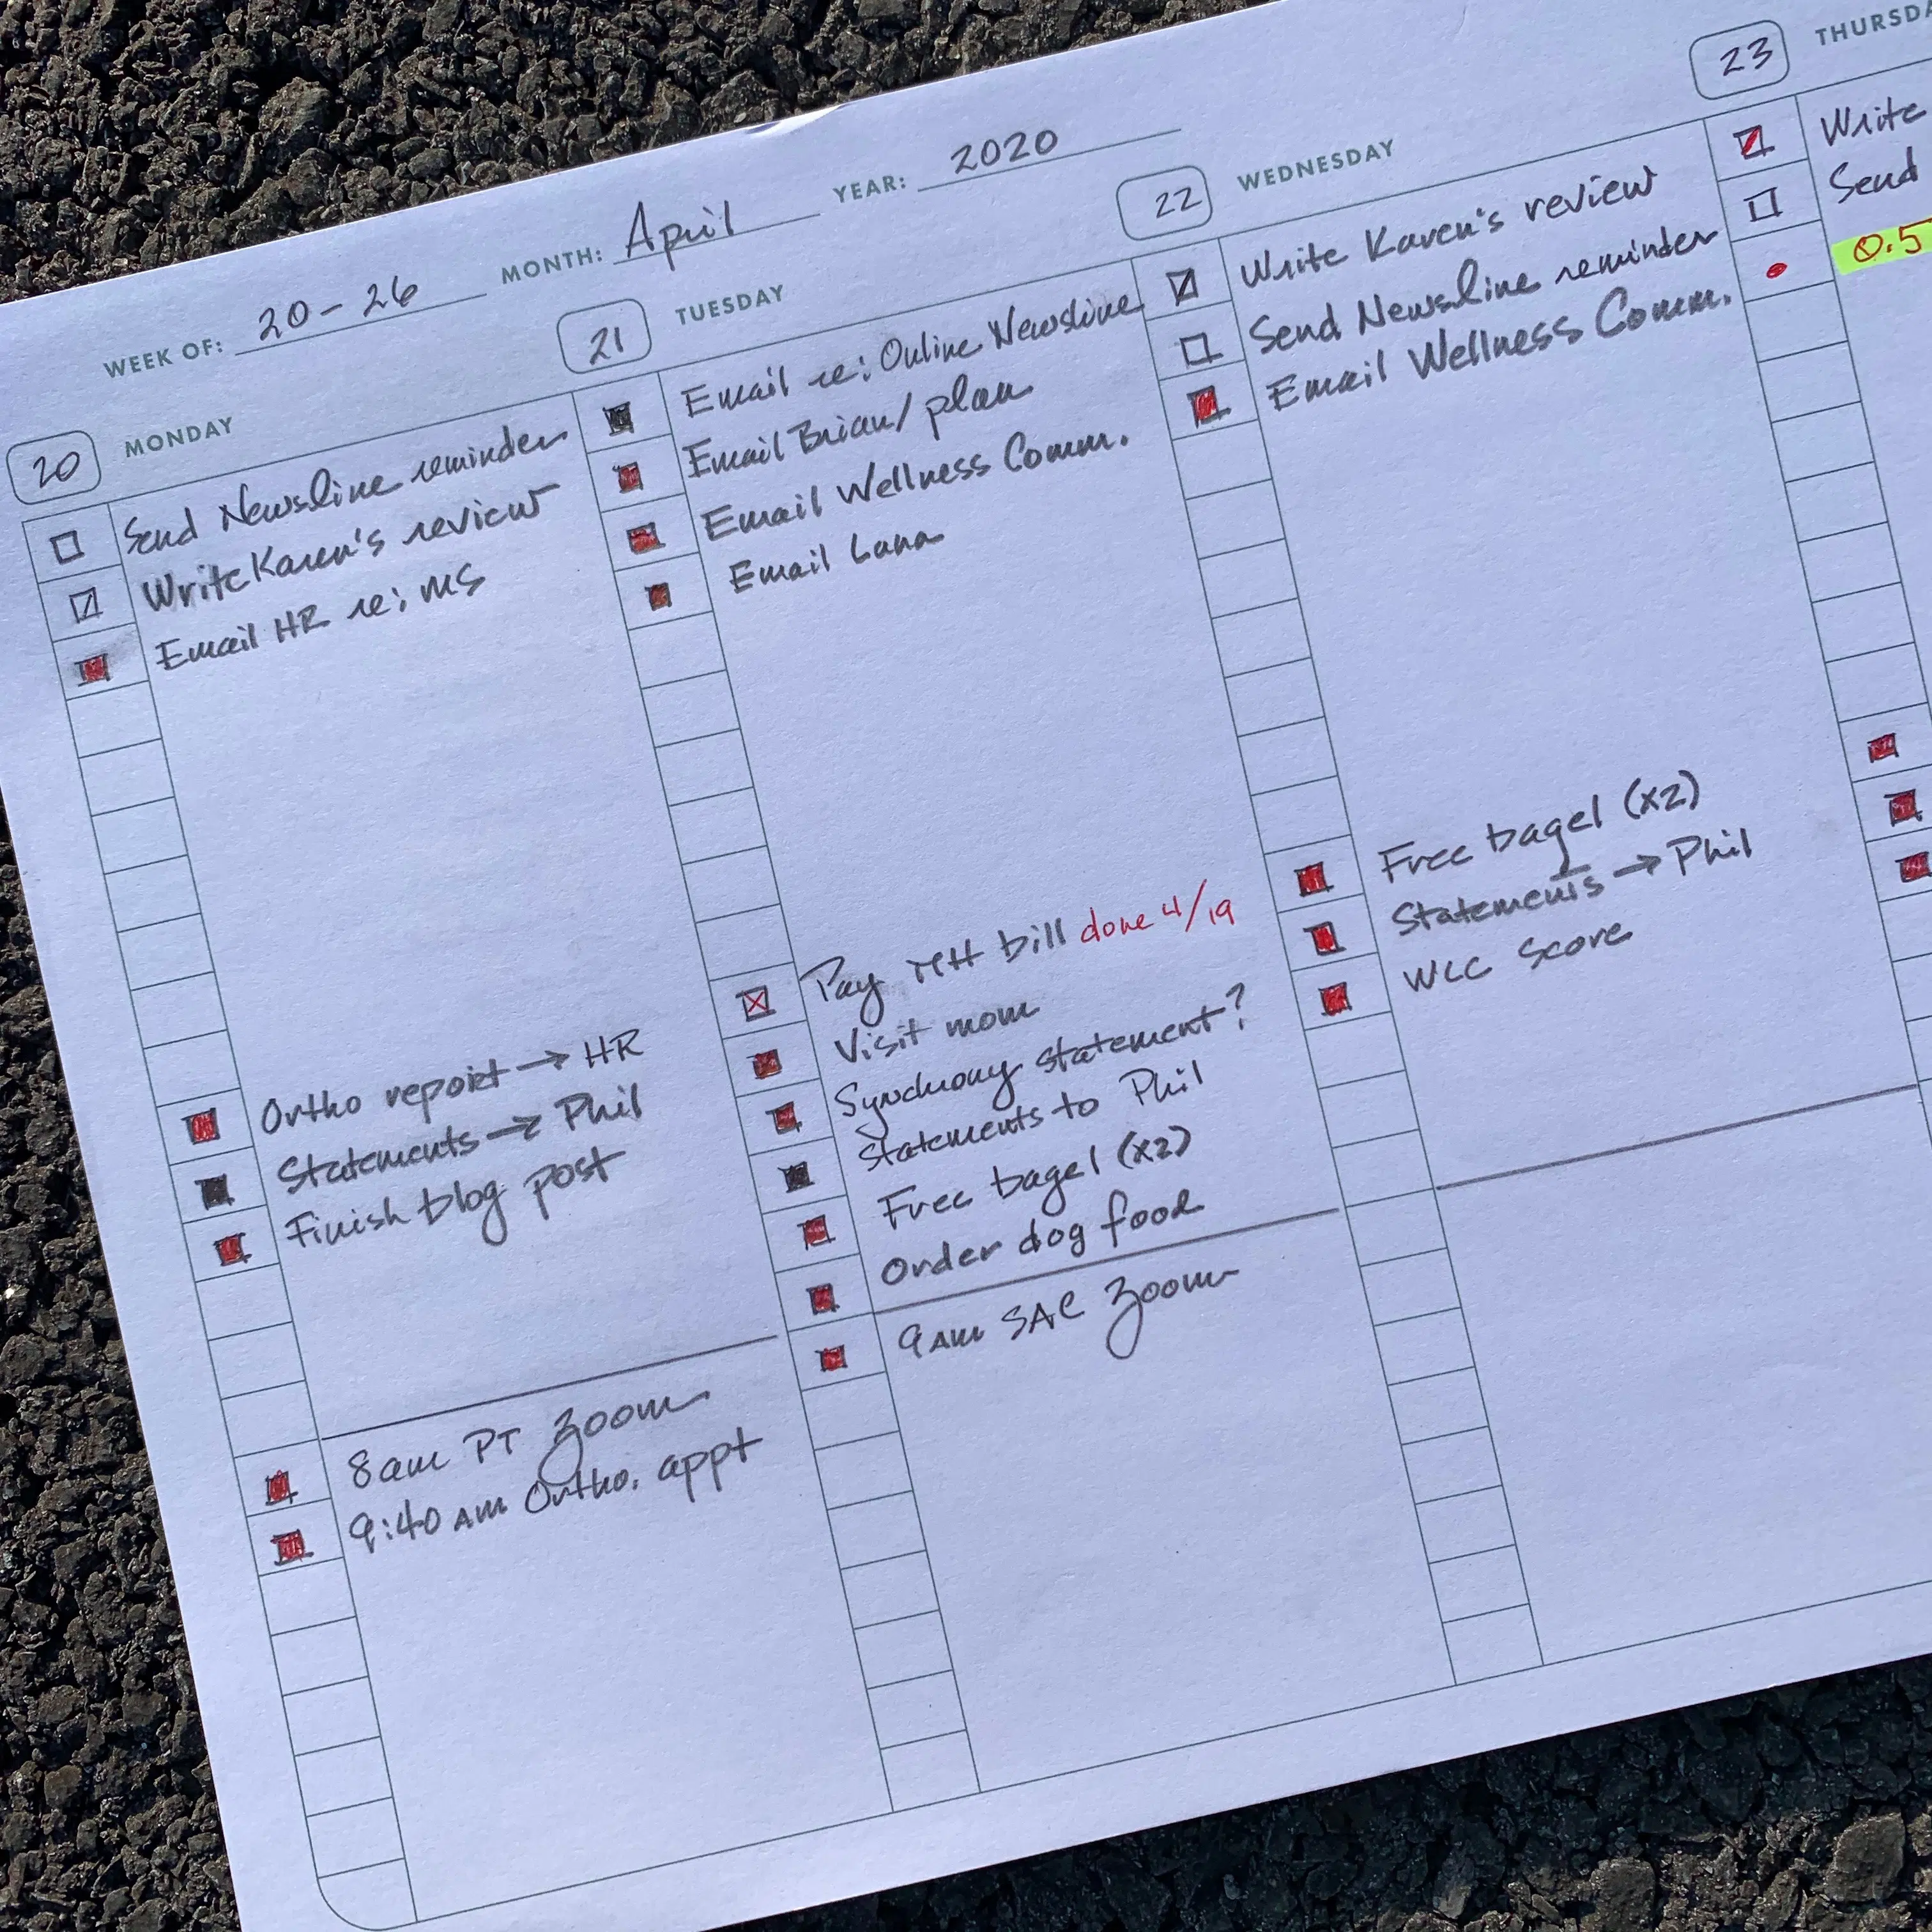 WEEK OF: 20-26 MONTH: April YEAR: 2020
20 MONDAY
Send Newsline reminder
Write Karen's review
Email HR re: MS
Ortho report → HR
Statements → Phil
Finish blog post
8am PT Zoom
9:40 AM Ortho. appt
21 TUESDAY
Email re: Online Newsline
Email Brian/plan
Email Wellness Comm.
Email Lana
Pay MH bill done 4/19
Visit mom
Synchrony statement?
Statements to Phil
Free bagel (x2)
Order dog food
9AM SAC Zoom
22 WEDNESDAY
Write Karen's review
Send Newsline reminder
Email Wellness Comm.
Free bagel (x2)
Statements → Phil
WLC Score
23 THURSDA
Write
Send
0.5